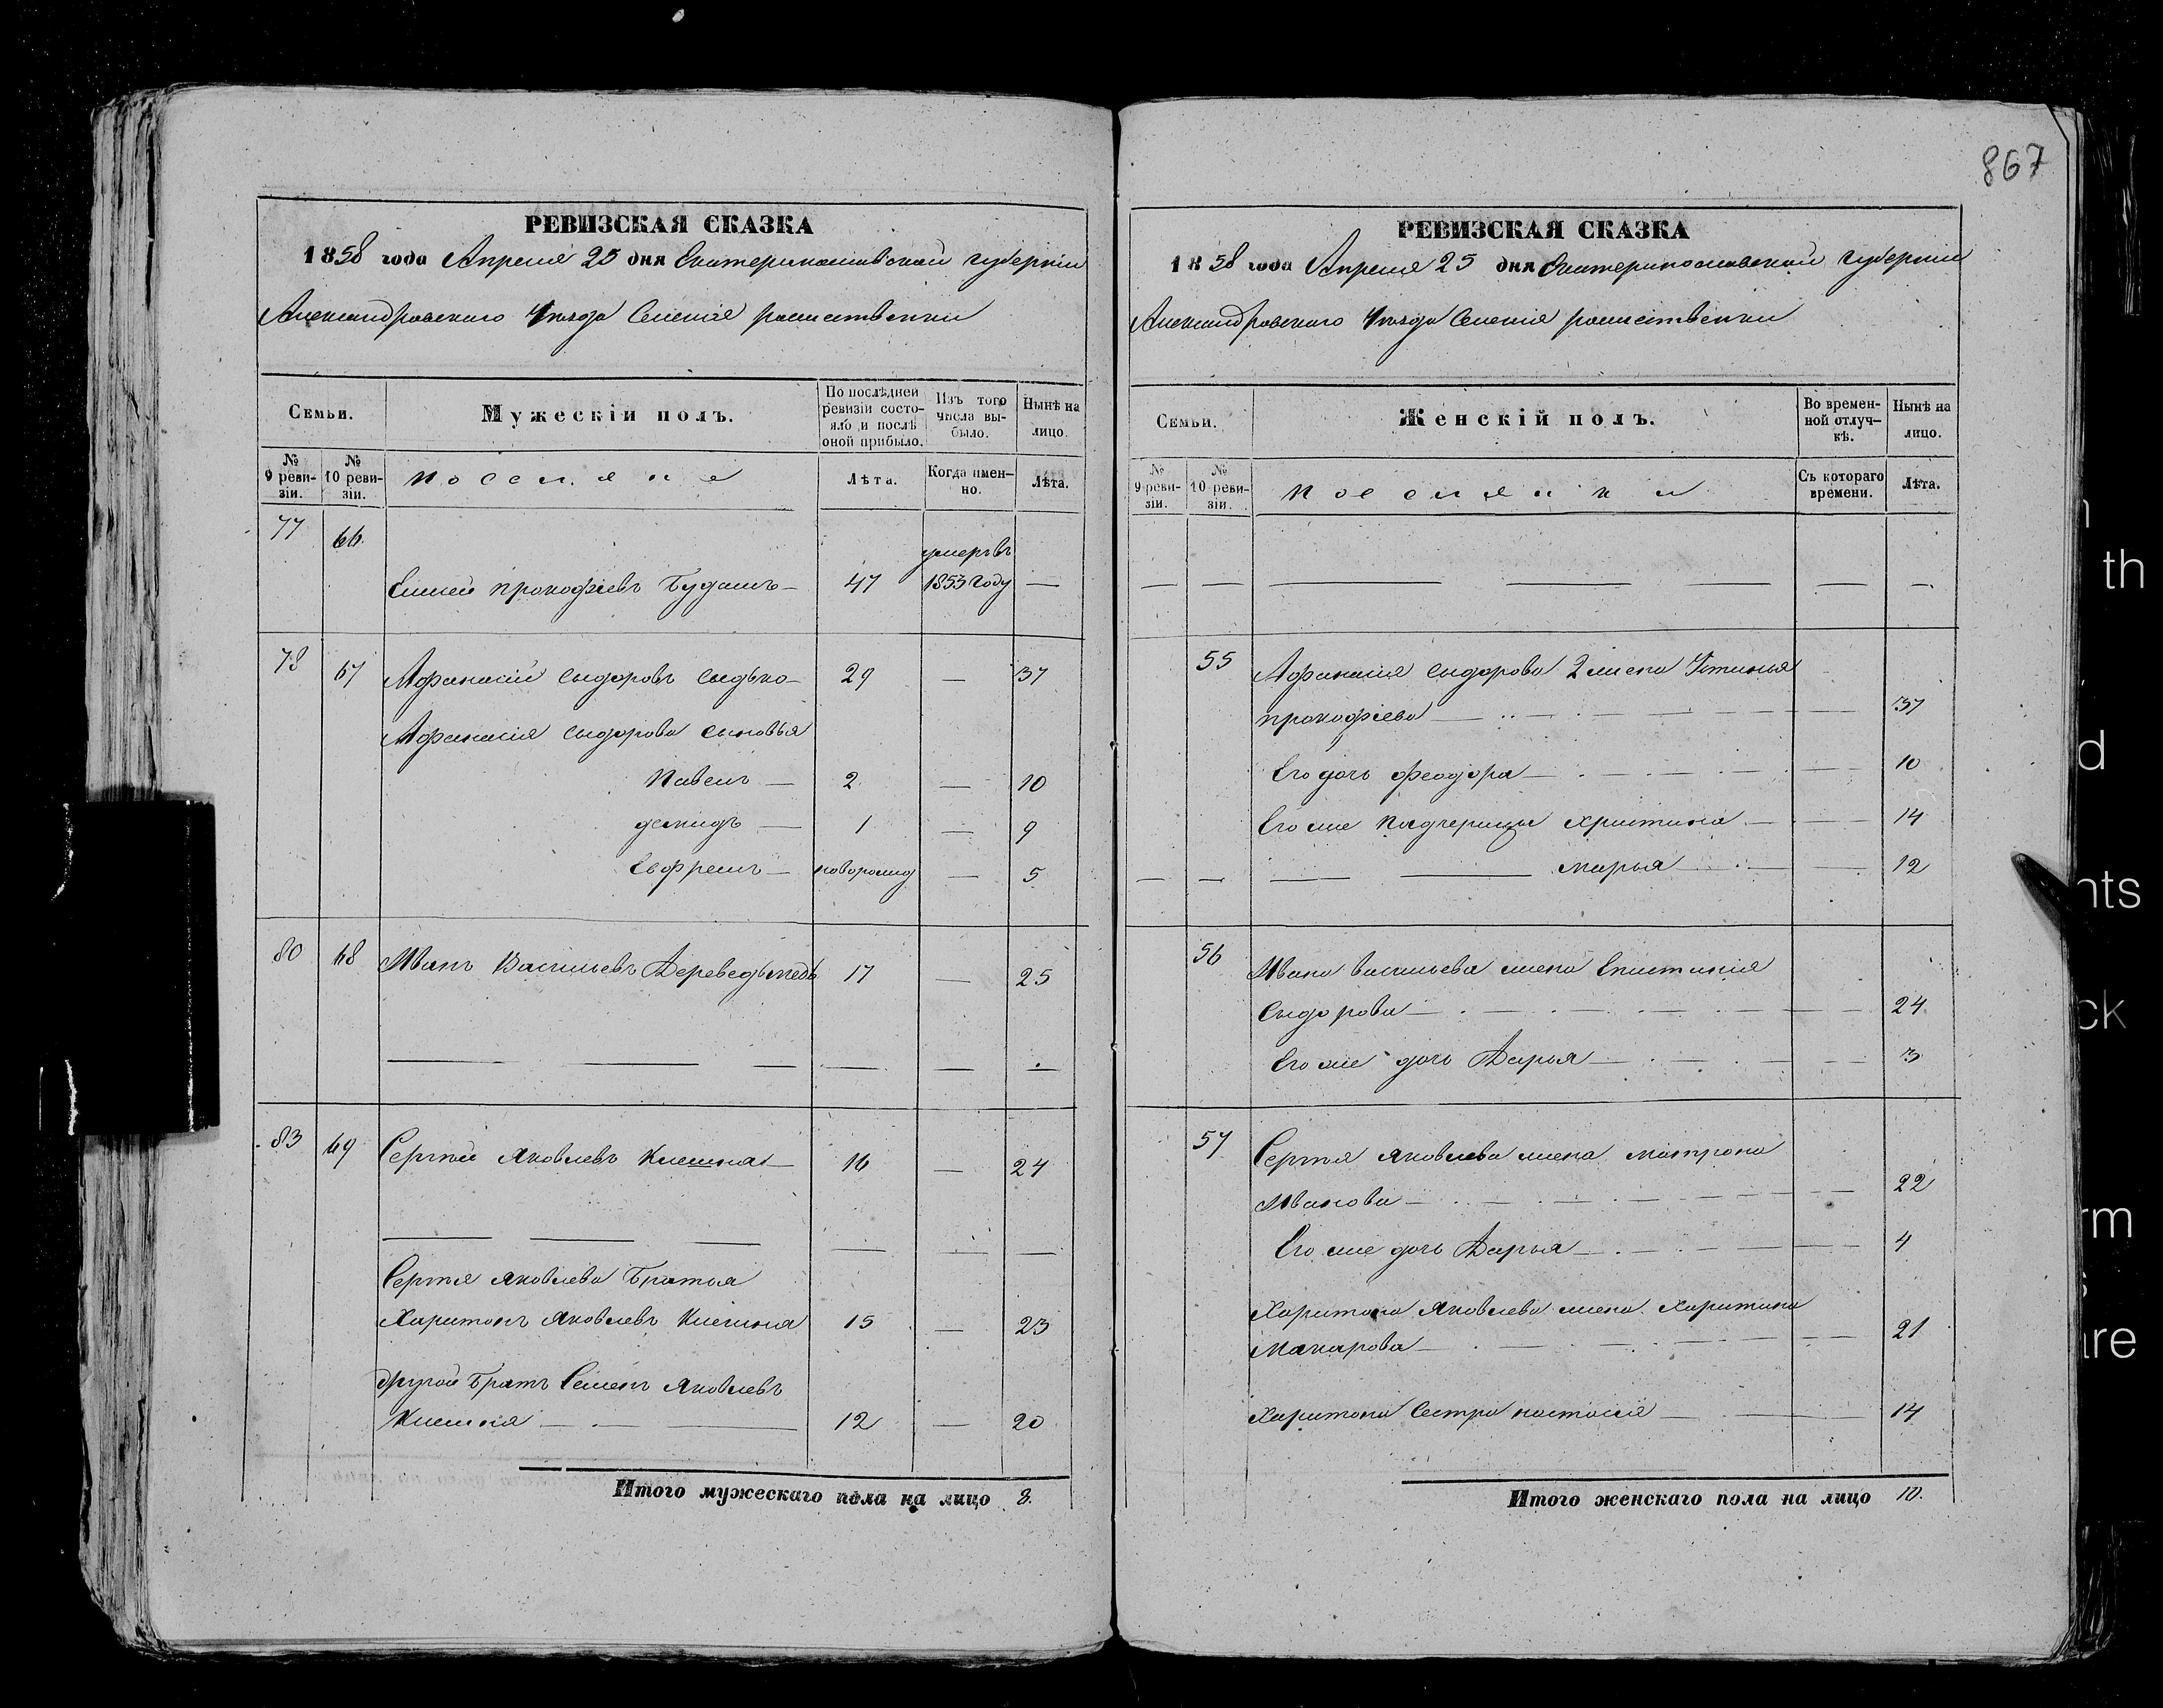 867
РЕВИЗСКАЯ СКАЗКА
1858 года Апреля 25 дня Екатеринославской губернии
Александровскаго Уезда Селения рожественки
Семьи.
Мужескій полъ.
По послѣдней ревизіи состояло и послѣ оной прибыло.
Изъ того числа выбыло.
Нынѣ на лицо.
№ 9 ревизіи.
№ 10 ревизіи.
поселяне
Лѣта.
Когда именно.
Лѣта.
77 66
умеръ въ
Прокофіевъ 47 1853 году —
78 67 Афанасій Сыдоровъ Сыдько — 29 — 37
Афанасія Сыдорова сыновья
Павелъ — 2 — 10
Демидъ — 1 — 9
Ефремъ — новорожд — 5
80 68 Иванъ Васильевъ Переведьмедь 17 — 25
83 69 Сергей Яковлевъ — 16 — 24
Сергея Яковлева Братья
Харитонъ Яковлевъ 15 — 23
другой Братъ Семенъ Яковлевъ
— 12 — 20
Итого мужескаго пола на лицо 8.
РЕВИЗСКАЯ СКАЗКА
1858 года Апреля 25 дня Екатеринославской губернии
Александровскаго Уезда Селения рожественки
Семьи.
Женскій полъ.
Во временной отлучкѣ.
Нынѣ на лицо.
№ 9 ревизіи.
№ 10 ревизіи.
поселянки
Съ котораго времени.
Лѣта.
55 Афанасия Сыдорова 2 жена Устинья
прокофіева — 37
Его дочь феодора — 10
Его же Падчерицы Христина — 14
марья — 12
56 Ивана Васильева жена Епистинія
Сыдорова — 24
Его же дочь Дарья — 3
57 Сергея Яковлева жена матрона
Иванова — 22
Его же дочь Дарья — 4
Харитона Яковлева жена Харитина
Макарова — 21
Харитона Сестра настасія — 14
Итого женскаго пола на лицо 10.
th
d
nts
ck
rm
are